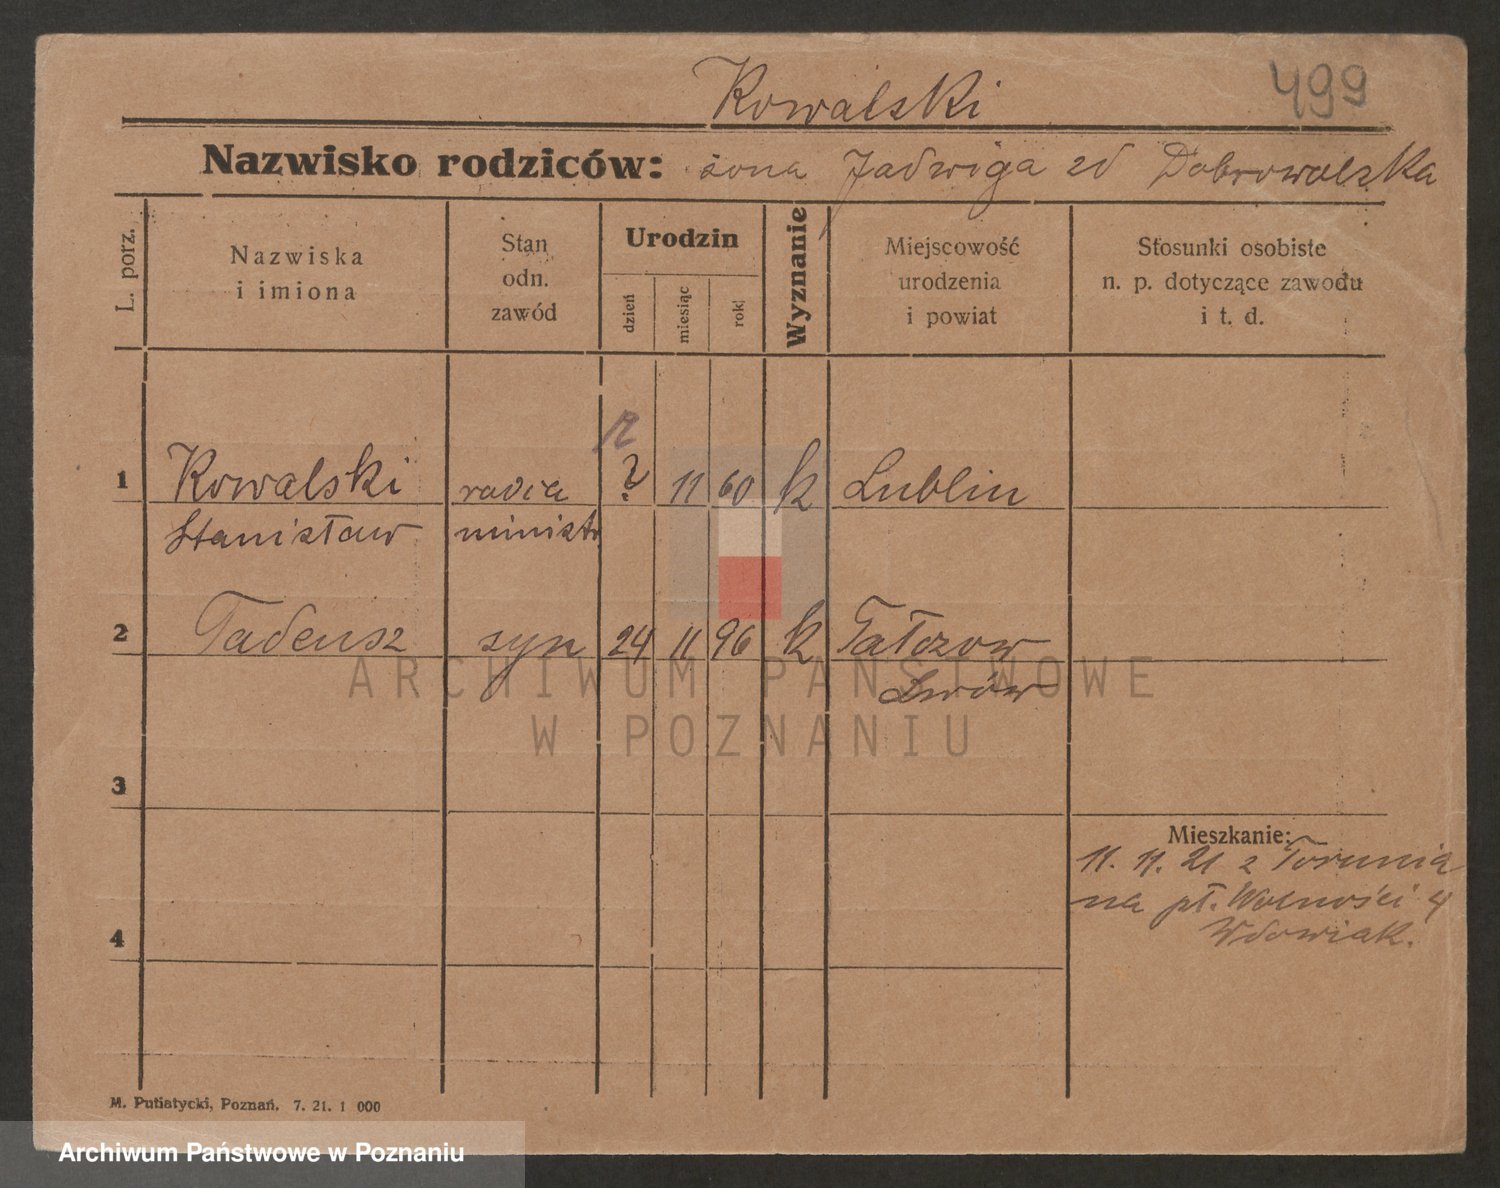 Kowalski 499
Nazwisko rodziców: żona Jadwiga zd Dobrowolska
L. porz.
Nazwiska
i imiona
Stan
odn.
zawód
Urodzin
dzień
miesiąc
rok
Wyznanie
Miejscowość
urodzenia
i powiat
Stosunki osobiste
n. p. dotyczące zawodu
i t. d.
1 Kowalski radca ? 11 60 k Lublin
Stanisław ministr
2 Tadeusz syn 24 11 96 k
Lwów
3
Mieszkanie:
11. 11. 21 z Torunia
na pl. Wolności 4
4
Wdowiak.
M. Putiatycki, Poznań. 7. 21. 1 000
ARCHIWUM PAŃSTWOWE
W POZNANIU
Archiwum Państwowe w Poznaniu